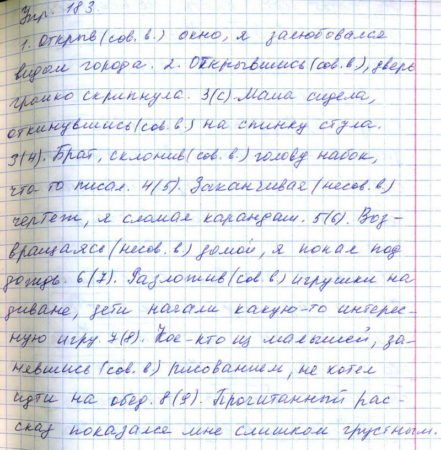 Упр. 183.
1. Открыв (сов. в.) окно, я залюбовался
видом города. 2. Открывшись (сов. в), дверь
громко скрипнула. 3(с). Мама сидела,
откинувшись (сов. в) на спинку стула.
3(4). Брат, склонив (сов. в) голову набок,
что то писал. 4(5). Заканчивая (несов. в)
чертеж, я сломал карандаш. 5(6). Воз-
вращаясь (несов. в) домой, я попал под
дождь. 6(7). Разложив (сов в) игрушки на
диване, дети начали какую-то интерес-
ную игру. 7(8). Кое-кто из малышей, за-
нявшись (сов. в) рисованием, не хотел
идти на обед. 8(9). Прочитанный рас-
сказ показался мне слишком грустным.